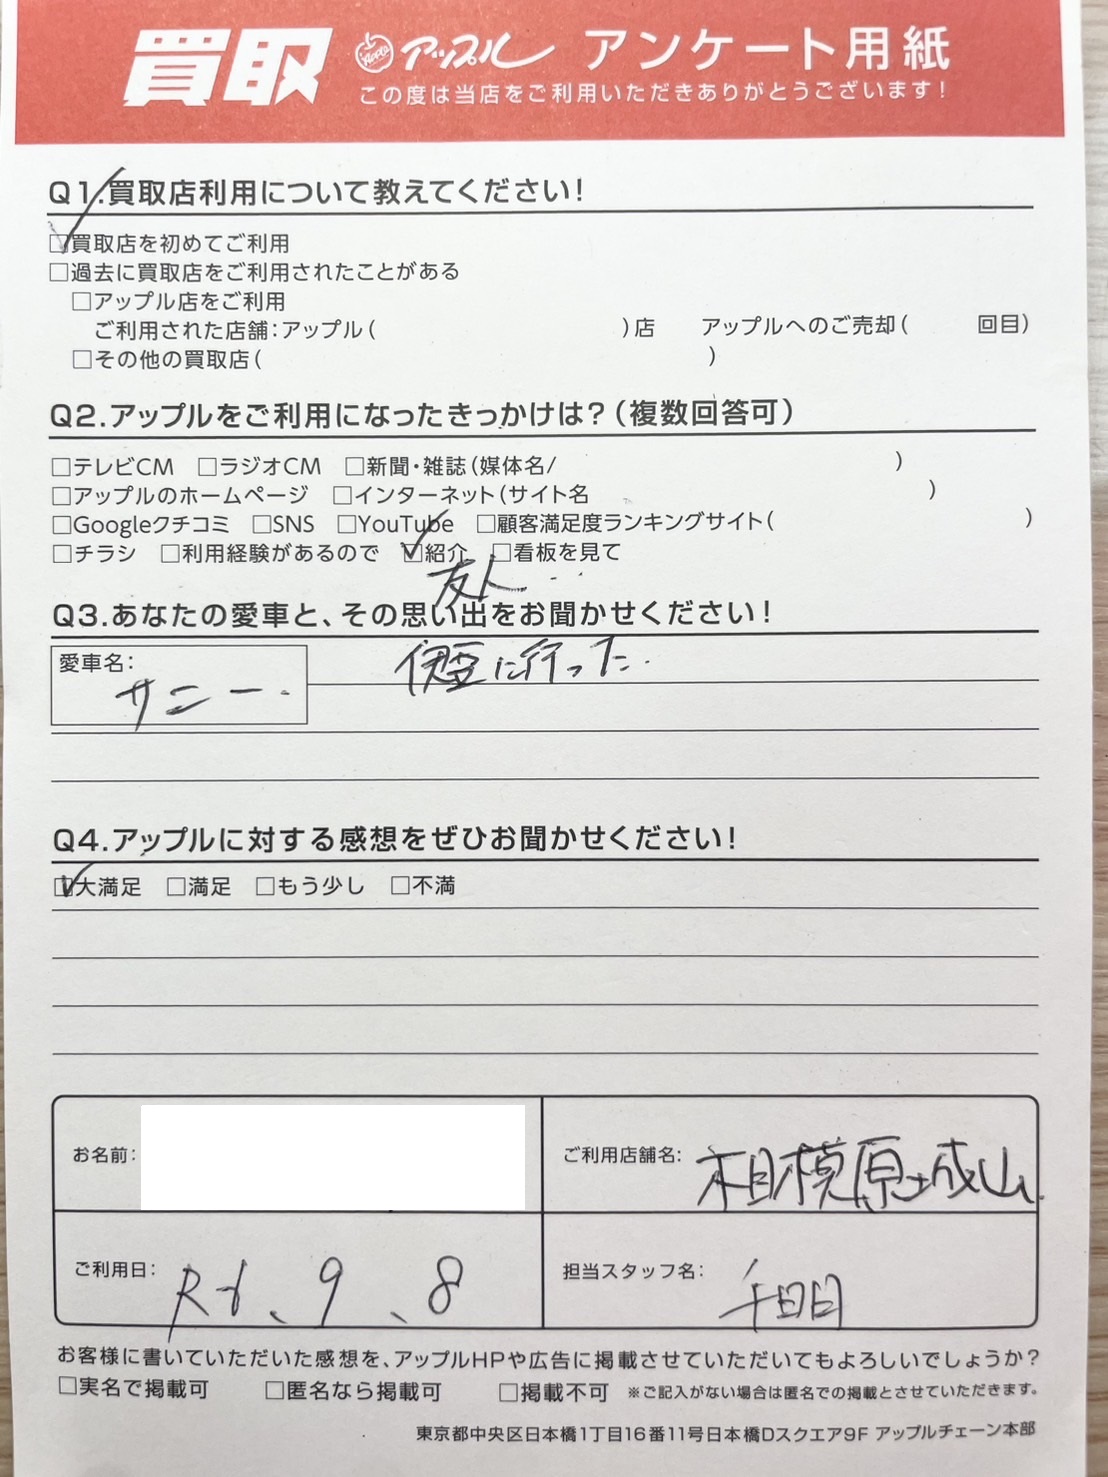 買取 アップル アンケート用紙
この度は当店をご利用いただきありがとうございます!
Q1.買取店利用について教えてください!
☑買取店を初めてご利用
□過去に買取店をご利用されたことがある
□アップル店をご利用
ご利用された店舗:アップル( )店 アップルへのご売却( 回目)
□その他の買取店( )
Q2.アップルをご利用になったきっかけは?(複数回答可)
□テレビCM □ラジオCM □新聞・雑誌(媒体名/ )
□アップルのホームページ □インターネット(サイト名 )
□Googleクチコミ □SNS □YouTube □顧客満足度ランキングサイト( )
□チラシ □利用経験があるので ☑紹介 □看板を見て
友人
Q3.あなたの愛車と、その思い出をお聞かせください!
愛車名:
サニー.
伊豆に行った.
Q4.アップルに対する感想をぜひお聞かせください!
☑大満足 □満足 □もう少し □不満
お名前:
ご利用店舗名: 相模原城山.
ご利用日: R6、9、8
担当スタッフ名:
お客様に書いていただいた感想を、アップルHPや広告に掲載させていただいてもよろしいでしょうか?
□実名で掲載可 □匿名なら掲載可 □掲載不可 ※ご記入がない場合は匿名での掲載とさせていただきます。
東京都中央区日本橋1丁目16番11号日本橋Dスクエア9F アップルチェーン本部